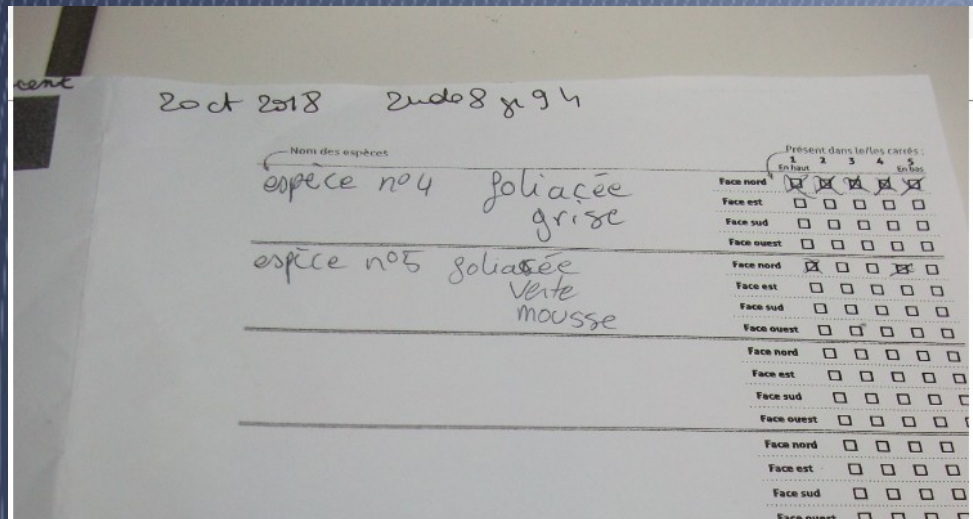 cent
2 oct 2018
Nom des espèces
Présent dans le/les carrés :
1 2 3 4 5
En haut En bas
espèce n°4 foliacée
grise
Face nord
Face est
Face sud
Face ouest
espèce n°5 foliacée
verte
mousse
Face nord
Face est
Face sud
Face ouest
Face nord
Face est
Face sud
Face ouest
Face nord
Face est
Face sud
Face ouest